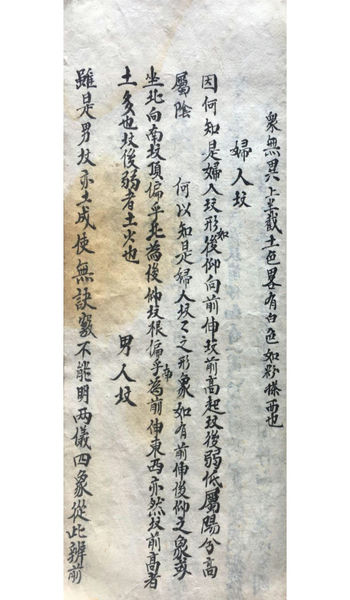 衆無異六上半截土色畧有白色如影様而也
婦人坟
因何知是婦人坟形如後仰向前伸坟前高起坟後弱低屬陽兮高
屬陰　何以知是婦人坟〻之形象如有前伸後仰之象
坐北向南坟頂偏乎北為後仰坟根偏乎南為前伸東西亦然坟前高者
土多也坟後弱者土少也
男人坟
雖是男坟亦土成使無訣竅不能明两儀四象從此辨前